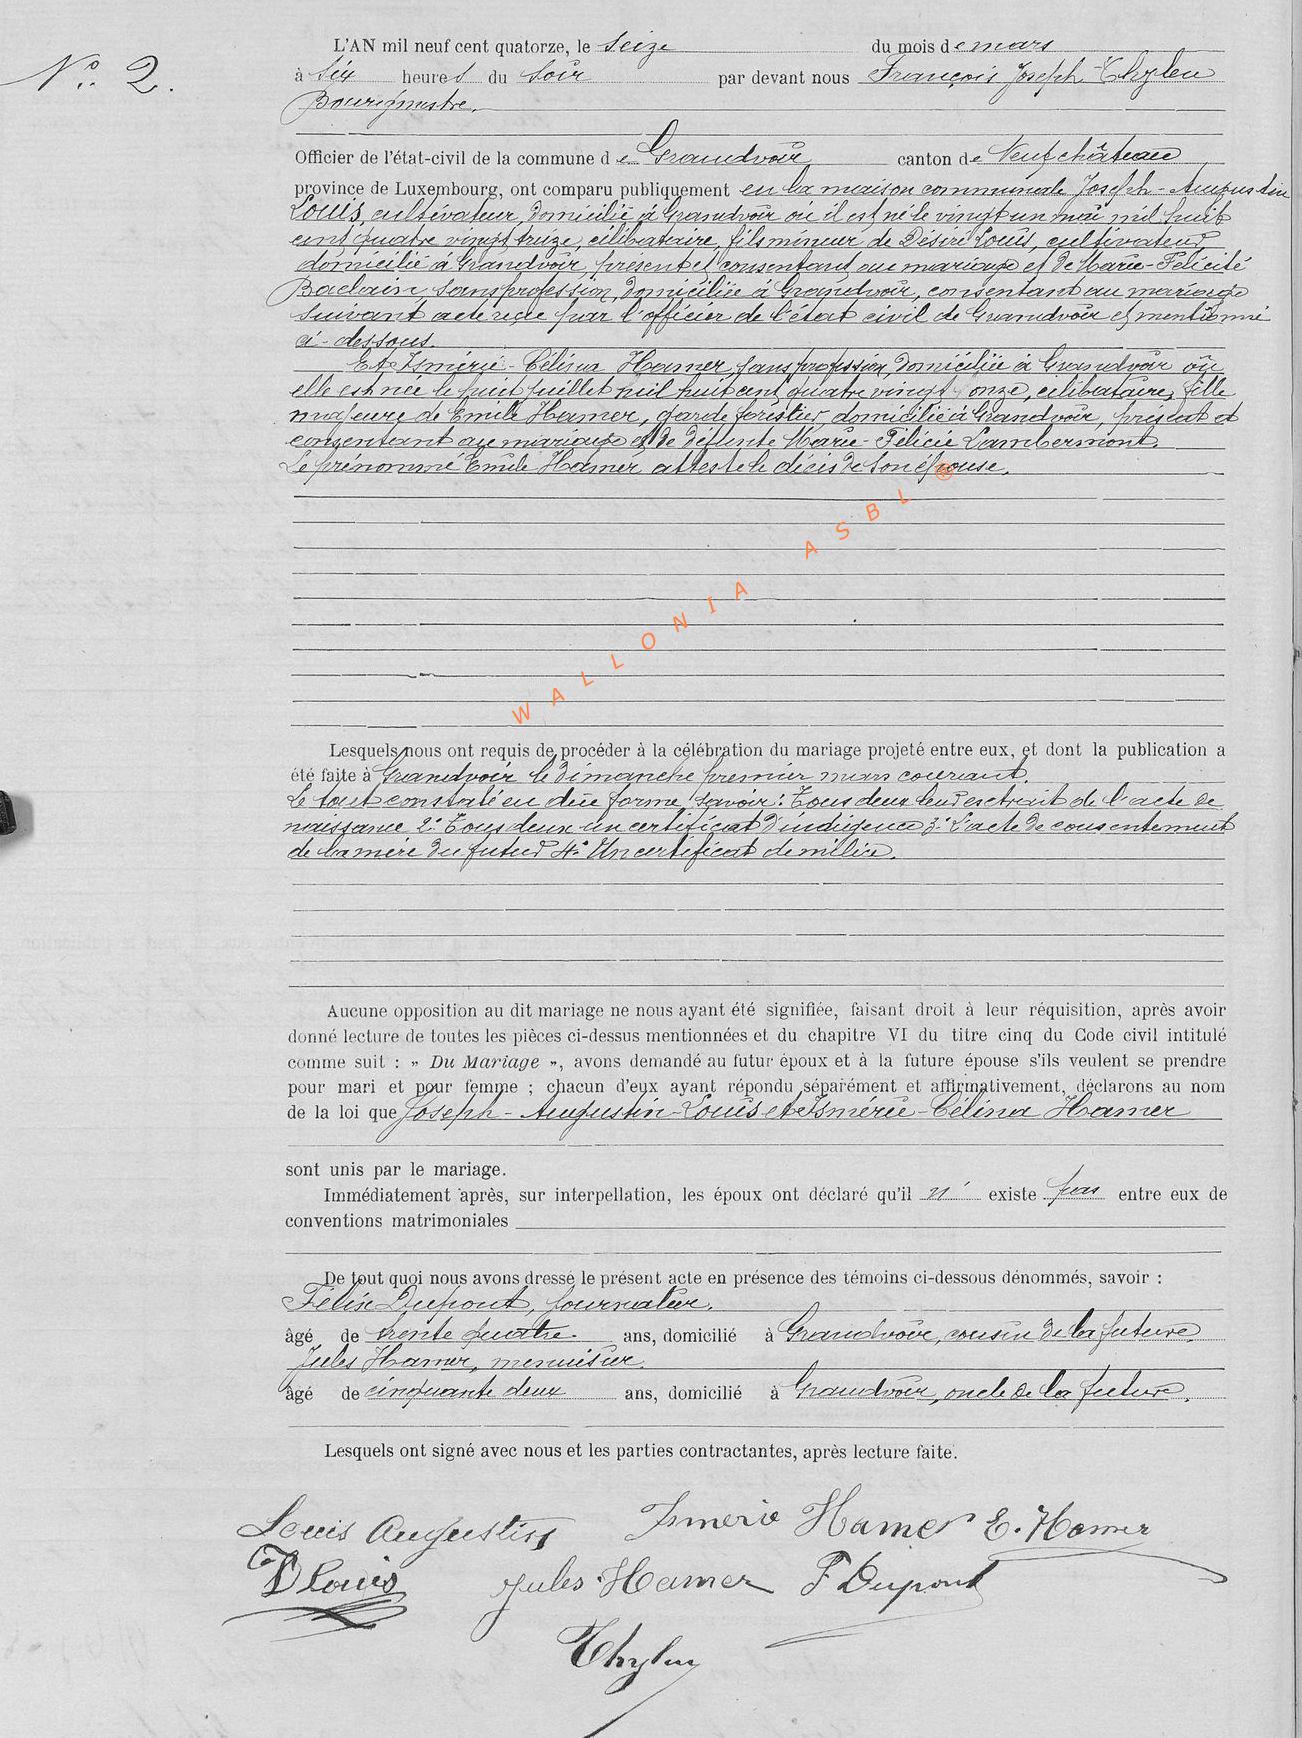 N° 2.
L'AN mil neuf cent quatorze, le seize du mois de mars
à six heures du soir par devant nous François Joseph Thyleu
Bourgmestre.
Officier de l'état-civil de la commune de Grandvoir canton de Neufchâteau
province de Luxembourg, ont comparu publiquement en la maison communale Joseph-Augustin
Louis, cultivateur, domicilié à Grandvoir où il est né le vingt un mai mil huit
cent quatre vingt treize, célibataire, fils mineur de Désiré Louis, cultivateur,
domicilié à Grandvoir, présent et consentant au mariage et de Marie-Félicité
Baclain, sans profession, domiciliée à Grandvoir, consentant au mariage
suivant acte reçu par l'officier de l'état civil de Grandvoir et mentionné
ci-dessous.
Et Ismérie-Célina Hamer, sans profession, domiciliée à Grandvoir où
elle est née le huit juillet mil huit cent quatre vingt onze, célibataire, fille
majeure de Emile Hamer, garde forestier, domicilié à Grandvoir, présent et
consentant au mariage et de défunte Marie-Félicie Lambermont.
Le prénommé Emile Hamer atteste le décès de son épouse.
WALLONIA ASBL ®
Lesquels nous ont requis de procéder à la célébration du mariage projeté entre eux, et dont la publication a
été faite à Grandvoir le dimanche premier mars courant.
Le tout constaté en due forme, savoir: Tous deux leur extrait de l'acte de
naissance 2° Tous deux un certificat d'indigence 3° L'acte de consentement
de la mère du futur 4° Un certificat de milice.
Aucune opposition au dit mariage ne nous ayant été signifiée, faisant droit à leur réquisition, après avoir
donné lecture de toutes les pièces ci-dessus mentionnées et du chapitre VI du titre cinq du Code civil intitulé
comme suit : » Du Mariage », avons demandé au futur époux et à la future épouse s'ils veulent se prendre
pour mari et pour femme ; chacun d'eux ayant répondu séparément et affirmativement, déclarons au nom
de la loi que Joseph-Augustin Louis et Ismérie-Célina Hamer
sont unis par le mariage.
Immédiatement après, sur interpellation, les époux ont déclaré qu'il n' existe pas entre eux de
conventions matrimoniales
De tout quoi nous avons dressé le présent acte en présence des témoins ci-dessous dénommés, savoir :
Félix Dupont, journalier,
âgé de trente quatre ans, domicilié à Grandvoir, cousin de la future.
Jules Hamer, menuisier
âgé de cinquante deux ans, domicilié à Grandvoir, oncle de la future.
Lesquels ont signé avec nous et les parties contractantes, après lecture faite.
Louis Augustin Ismerie Hamer E. Hamer
D Louis Jules Hamer F Dupont
Thyleu